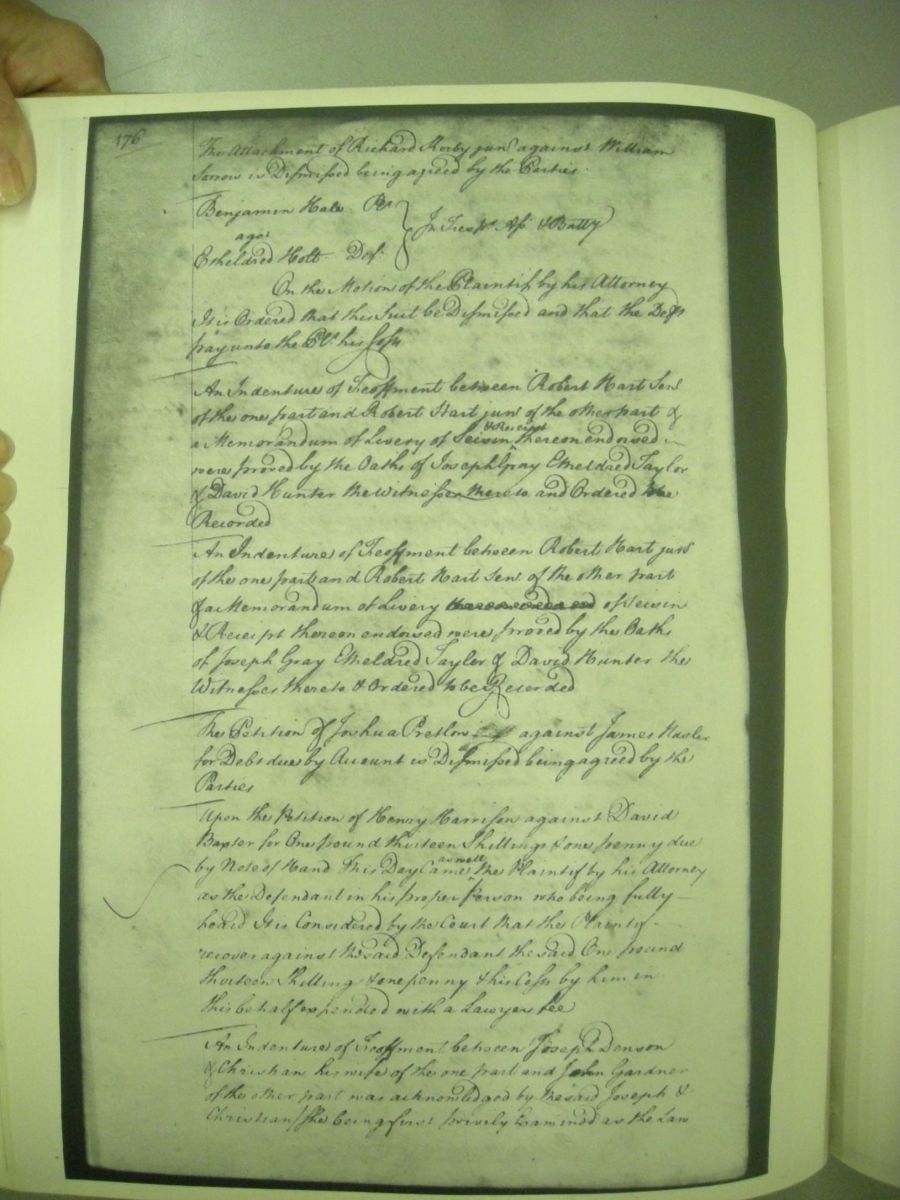 176
The Attachment of Richard Kerby junr against William
Sorrow is Dismissed being agreed by the Parties
Benjamin Hale Plt
agst
In Tresps Ass & Batty
Etheldred Holt Deft
On the Motion of the Plaintif by his Attorney
It is Ordered that this Suit be Dismissed and that the Deft
pay unto the Plt his Costs
An Indenture of Feoffment between Robert Hart Senr
of the one part and Robert Hart junr of the other part &
a Memorandum of Livery of Seisin & Receipt thereon endorsed
were proved by the Oaths of Joseph Gray Etheldred Taylor
& David Hunter the Witnesses thereto and Ordered to be
Recorded
An Indenture of Feoffment between Robert Hart junr
of the one part and Robert Hart Senr of the other part
& a Memorandum of Livery of Seisin
& Receipt thereon endorsed were proved by the Oaths
of Joseph Gray Etheldred Taylor & David Hunter the
Witnesses thereto & Ordered to be Recorded
The Petition of Joshua Pretlow against James
for Debt due by Account is Dismissed being agreed by the
Parties
Upon the Petition of Henry Harrison against David
for One pound thirteen Shillings & one penny due
by Note of Hand This Day Came as well the Plaintif by his Attorney
as the Defendant in his proper Person who being fully
heard It is Considered by the Court that the Plaintif
recover against the said Defendant the said One pound
thirteen Shilling & one penny & his Costs by him in
this behalf expended with a Lawyers fee
An Indenture of Feoffment between Joseph Denson
& Christian his wife of the one part and John Gardner
of the other part was acknowledged by the said Joseph &
Christian she being first privily Examined as the Law